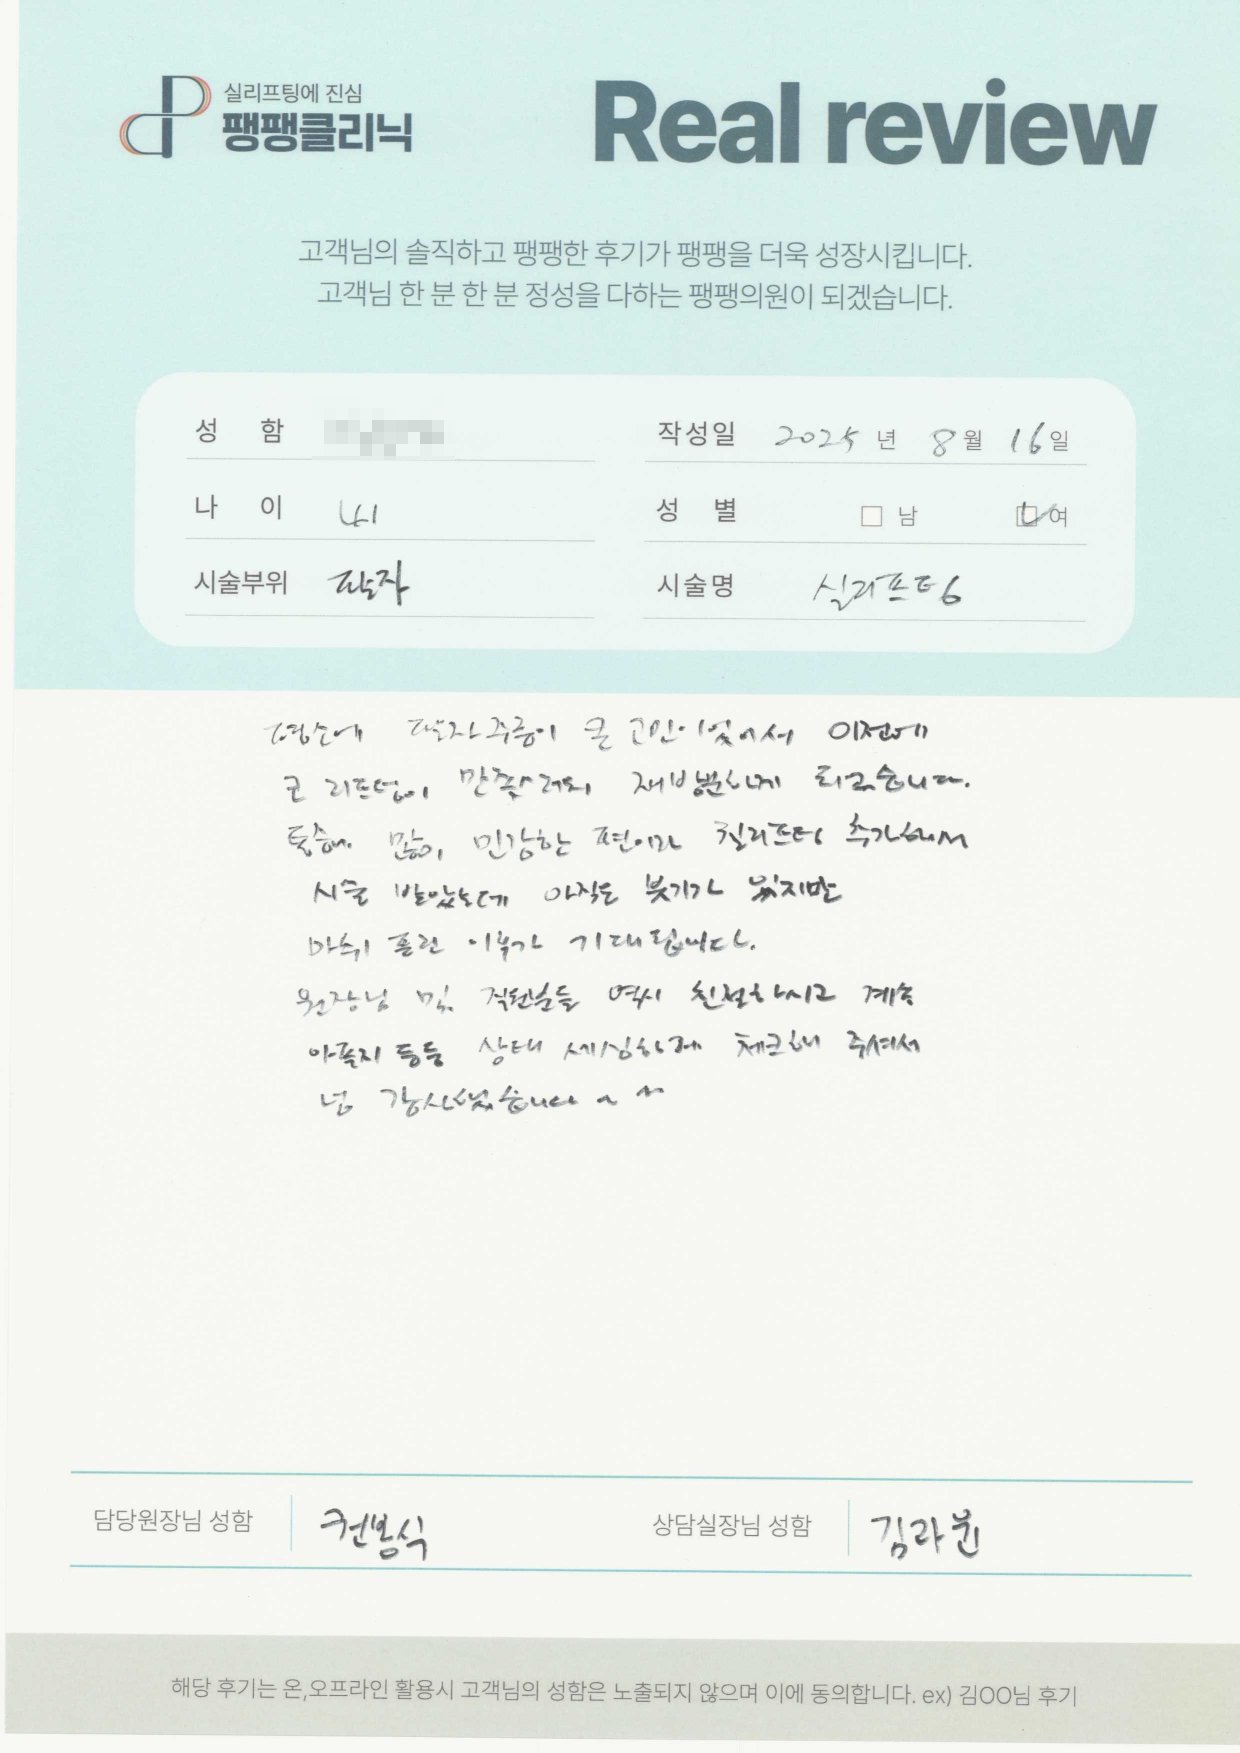 실리프팅에 진심
팽팽클리닉
Real review
고객님의 솔직하고 팽팽한 후기가 팽팽을 더욱 성장시킵니다.
고객님 한 분 한 분 정성을 다하는 팽팽의원이 되겠습니다.
성 함
작성일 2025 년 8 월 16 일
나 이 41
성 별 남 여
시술부위 팔자
시술명 실리프팅
평소에 팔자주름이 큰 고민이었어서 이전에
코 리프팅이 만족스러워 재방문하게 되었습니다.
통증에 많이 민감한 편이라 실리프팅 추가해서
시술 받았는데 아직도 붓기가 있지만
마취 풀린 이후가 기대됩니다.
원장님 및 직원분들 역시 친절하시고 계속
아픈지 등등 상태 세심하게 체크해 주셔서
넘 감사했습니다 ~ ^^
담당원장님 성함 권봉식
상담실장님 성함 김라윤
해당 후기는 온,오프라인 활용시 고객님의 성함은 노출되지 않으며 이에 동의합니다. ex) 김OO님 후기